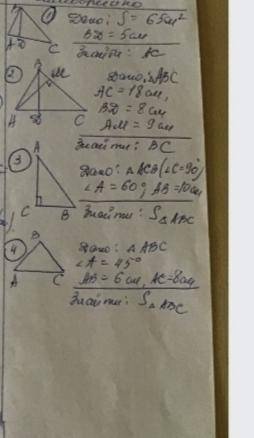 ① Дано: S = 65см²
B
BD = 5см
A D C
Знайти: AC
② B
M
Дано: △ABC
AC = 18см,
BD = 8см
A D C
AM = 9см
Знайти: BC
③ A
Дано: △ACB (∠C=90°)
∠A = 60°, AB=10см
C B
Знайти: S△ABC
④ B
Дано: △ABC
∠A = 45°
A C
AB = 6см, AC=8см
Знайти: S△ABC